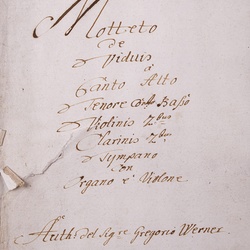 Motteto
de
Viduis
â
Canto Alto
Tenore Basso
Violinis 2bus
Clarinis 2bus
Tympano
con
Organo è Violone
Auth: del Sigre Gregorio Werner